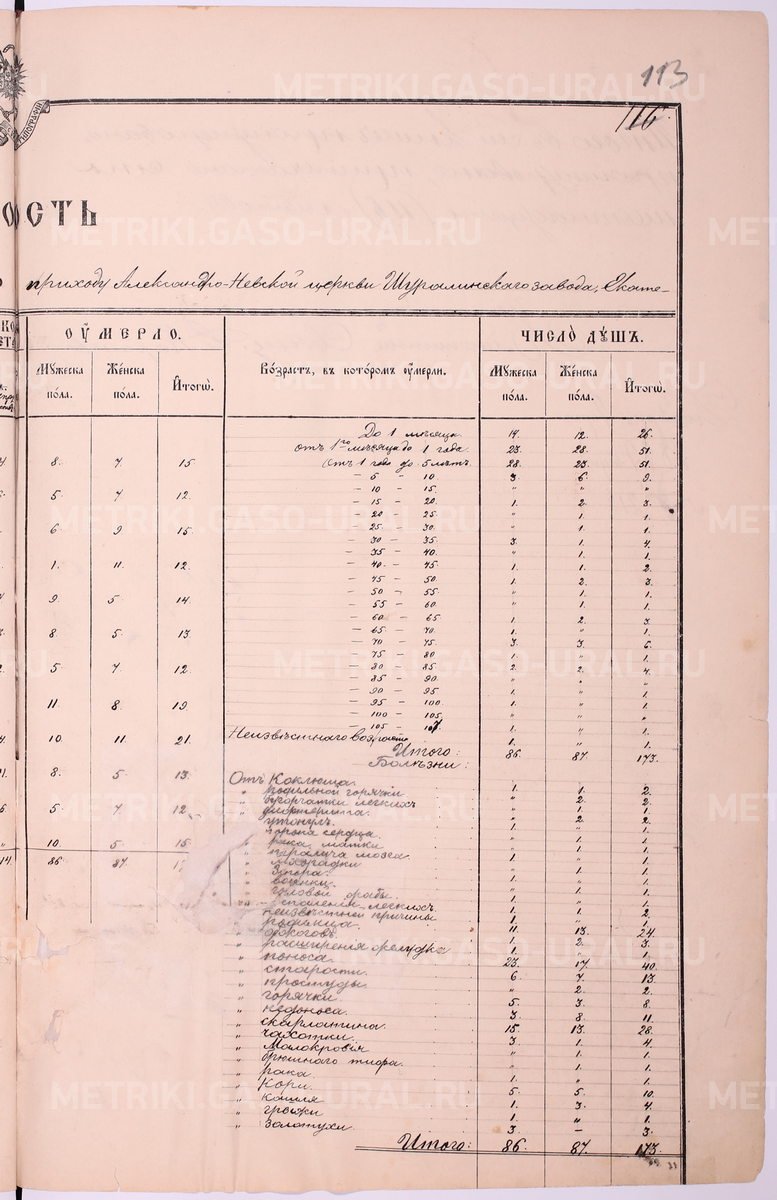 113
116
ОСТЬ
приходу Александро-Невской церкви Шуралинскаго завода, Екате-
ОУМЕРЛО.
ЧИСЛО ДУШЪ.
Возрастъ, въ которомъ оумерли.
Мужеска пола. Женска пола. Итого.
Мужеска пола. Женска пола. Итого.
До 1 мѣсяца. 14. 12. 26.
отъ 1го мѣсяца до 1 года. 23. 28. 51.
8. 7. 15
Отъ 1 года до 5 лѣтъ. 28. 23. 51.
– 5 – 10. 3. 6. 9.
5. 7. 12.
– 10 – 15. " " "
– 15 – 20. 1. 2. 3.
– 20 – 25. " 1. 1.
6. 9. 15.
– 25 – 30. " 1. 1.
– 30 – 35. 3. 1. 4.
– 35 – 40. " 1. 1.
1. 11. 12.
– 40 – 45 1. 1. 2.
– 45 – 50. 1. 2. 3.
– 50 – 55. " 1. 1.
9. 5. 14.
– 55 – 60. " 1. 1.
– 60 – 65 1. 2. 3.
8. 5. 13.
– 65 – 70. 1. " 1.
– 70 – 75. 3. 3.
– 75 – 80 1. " 1.
5. 7. 12.
– 80 – 85 2. 2. 4.
– 85 – 90. " " "
– 90 – 95 1. " 1.
11. 8. 19.
– 95 – 100. 1. " 1.
– 100 – 105. " " "
– 105 – 107. 1. " 1.
10. 11. 21.
Неизвѣстнаго возраста 1. " 1.
Итого: 86. 87. 173.
Болѣзни:
8. 5. 13.
Отъ Коклюша. 1. 1. 2.
" родильной горячки " 2. 2.
" легкихъ
5. 7. 12.
" утонулъ.
" порока сердца.
10. 5. 15
" рака матки
" паралича мозга.
86. 87.
" лихорадки
" запора.
" головой
" воспаленія легкихъ.
" неизвѣстной причины 1. 1. 2.
" родимца 11. 13. 24.
" ожоговъ. 1. 2. 3.
" расширенія желудка 1. " 1.
" поноса. 23. 17. 40.
" старости. 6. 7. 13.
" простуды " 2. 2.
" горячки. 5. 3. 8.
" 3. 8. 11.
" скарлатина. 15. 13. 28.
" чахотки. 3. 1. 4.
" Малокровія " 1. 1.
" брюшнаго тифа. " 1. 1.
" рака. 1. " 1.
" Кори. 5. 5. 10.
" кашля 1. 3. 4.
" грыжи 1. " 1.
" золотухи. 3. – 3.
Итого: 86. 87. 173.
METRIKI.GASO-URAL.RU